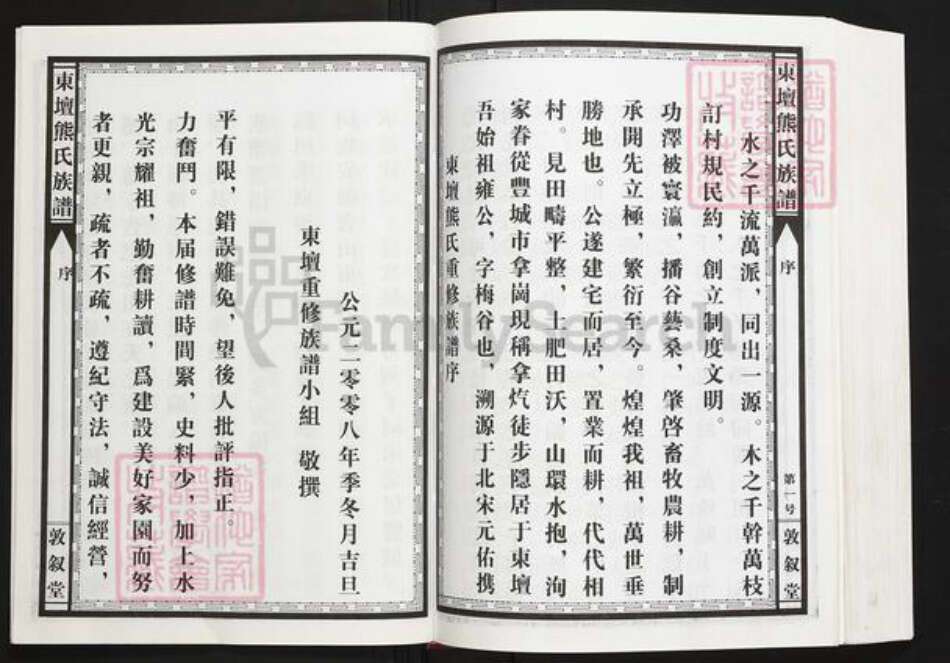 東壇熊氏族譜
序
敦叙堂
者更親，疏者不疏，遵紀守法，誠信經營，
光宗耀祖，勤奮耕讀，爲建設美好家園而努
力奮鬥。本届修譜時間緊，史料少，加上水
平有限，錯誤難免，望後人批評指正。
東壇重修族譜小組 敬撰
公元二零零八年季冬月吉旦
東壇熊氏重修族譜序
吾始祖雍公，字梅谷也，溯源于北宋元佑携
家眷從豐城市拿崗現稱拿炝徒步隱居于東壇
村。見田疇平整，土肥田沃，山環水抱，洵
勝地也。公遂建宅而居，置業而耕，代代相
承開先立極，繁衍至今。煌煌我祖，萬世垂
功澤被寰瀛，播谷藝桑，肇啓畜牧農耕，制
訂村規民約，創立制度文明。
水之千流萬派，同出一源。木之千幹萬枝
東壇熊氏族譜
序
第一号
敦叙堂
FamilySearch
猶他家譜學會收藏
猶他家譜學會收藏